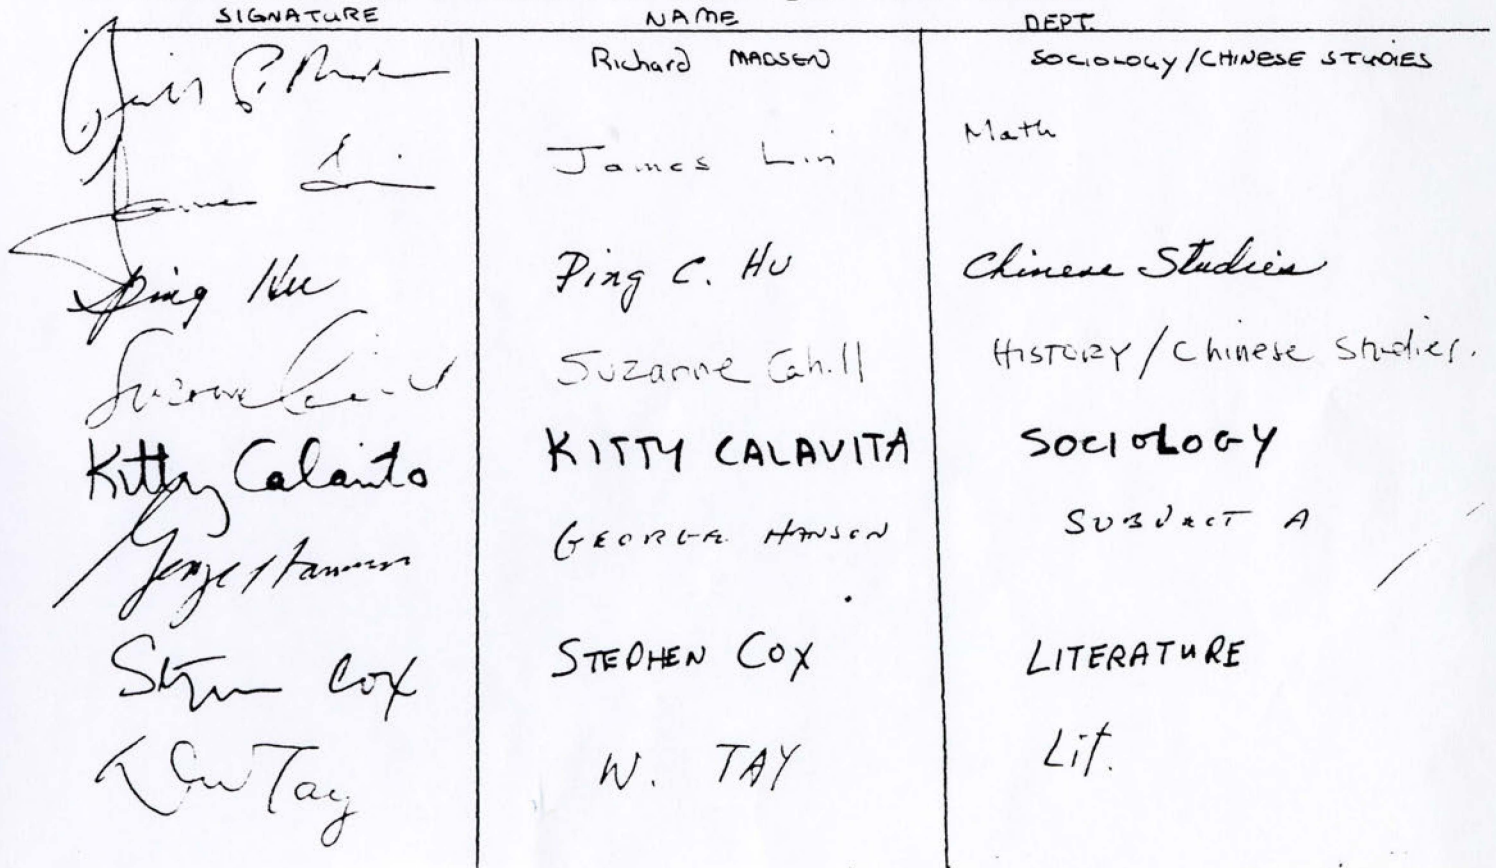 SIGNATURE NAME DEPT.
Richard MADSEN SOCIOLOGY/CHINESE STUDIES
James Lin Math
Ping Hu Ping C. Hu Chinese Studies
Suzanne Cahill HISTORY/Chinese Studies.
Kitty Calavita KITTY CALAVITA SOCIOLOGY
George Hansen GEORGE HANSEN SUBJECT A
Stephen Cox STEPHEN COX LITERATURE
Tay W. TAY Lit.